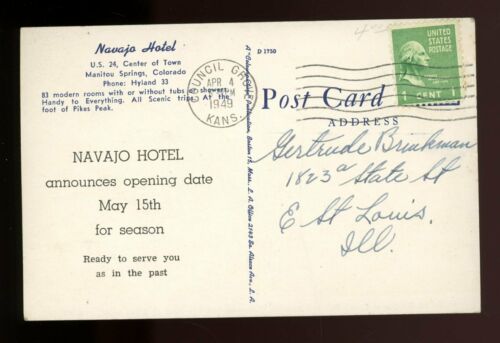 Navajo Hotel
U.S. 24, Center of Town
Manitou Springs, Colorado
Phone: Hyland 33
83 modern rooms with or without tubs showers
Handy to Everything. All Scenic trips At the
foot of Pikes Peak.
NAVAJO HOTEL
announces opening date
May 15th
for season
Ready to serve you
as in the past
COUNCIL GROVE
APR 4
PM
1949
KANS.
Boston 15, Mass., L. A. Office 2163 So.
D 1750
Post Card
ADDRESS
UNITED
STATES
POSTAGE
1 CENT 1
Gertrude Brinkman
1823a State St
E St Louis.
Ill.